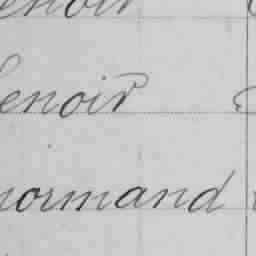 enoir
Lenoir
normand